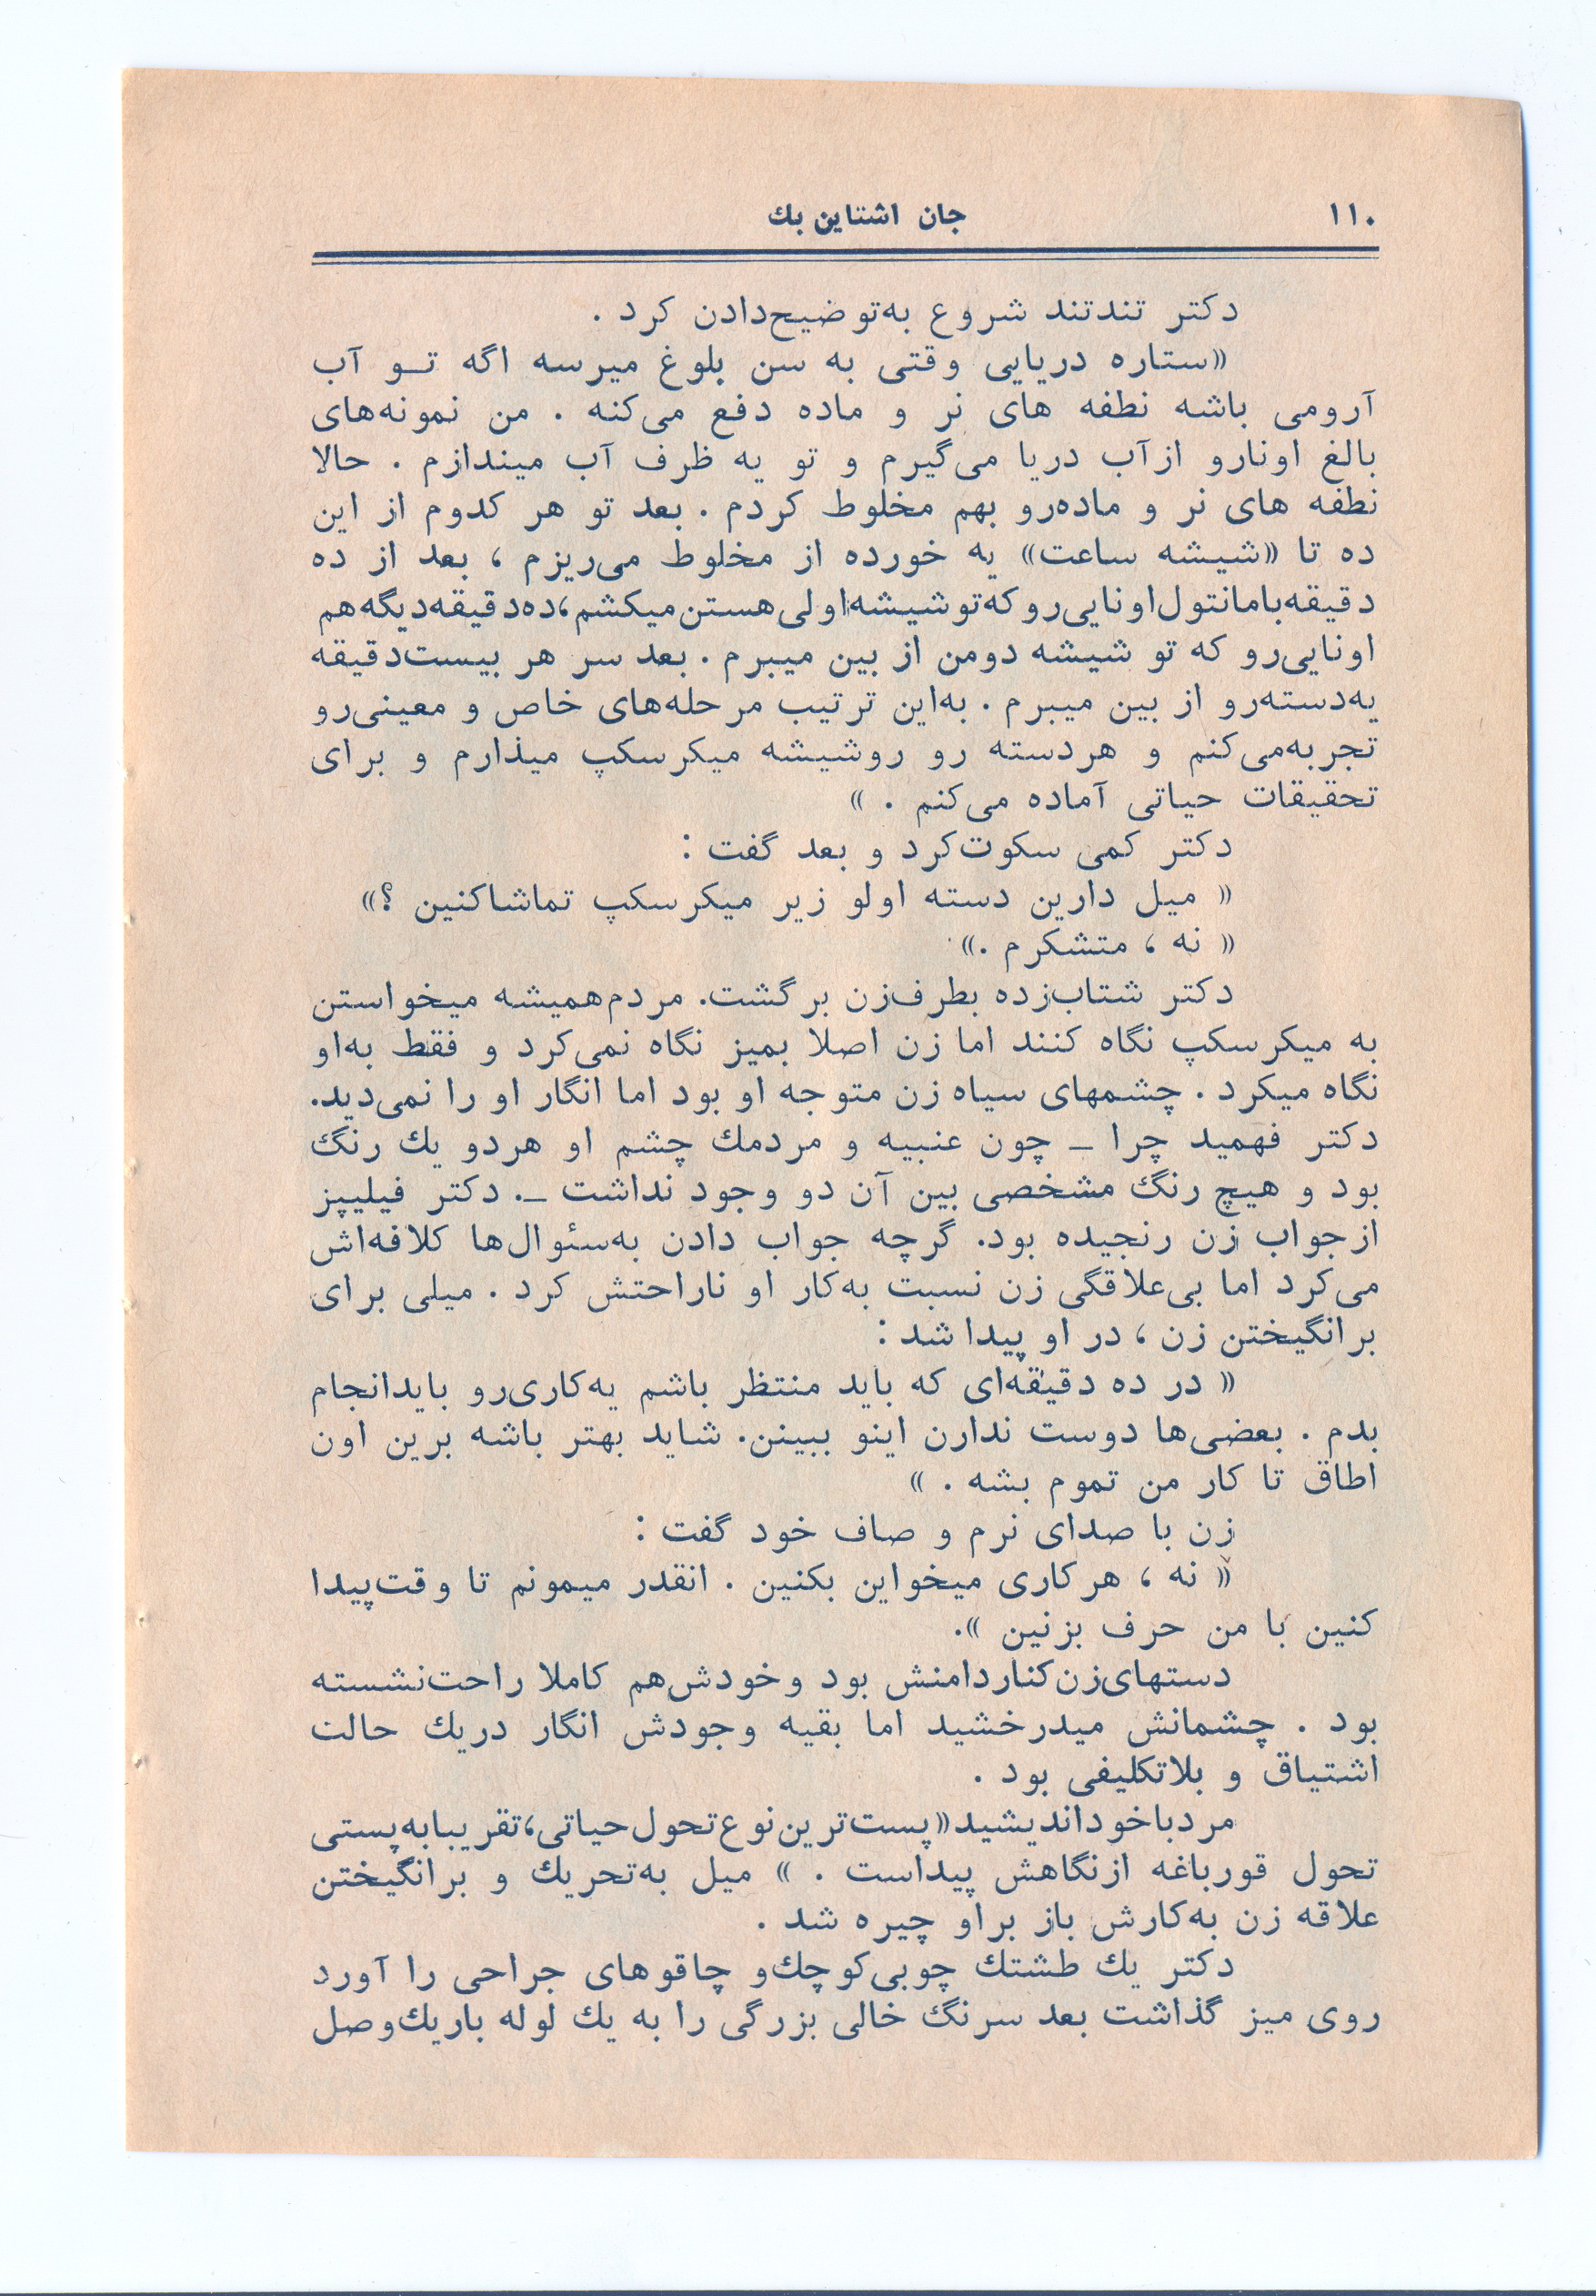 ۱۱۰
جان اشتاین بك
دکتر تندتند شروع به‌توضیح‌دادن کرد .
«ستاره دریایی وقتی به سن بلوغ میرسه اگه تــو آب
آرومی باشه نطفه های نر و ماده دفع می‌کنه . من نمونه‌های
بالغ اونارو ازآب دریا می‌گیرم و تو یه ظرف آب میندازم . حالا
نطفه های نر و ماده‌رو بهم مخلوط کردم . بعد تو هر کدوم از این
ده تا «شیشه ساعت» یه خورده از مخلوط می‌ریزم ، بعد از ده
دقیقه‌بامانتول‌اونایی‌روکه‌توشیشه‌اولی‌هستن‌میکشم،ده‌دقیقه‌دیگه‌هم
اونایی‌رو که تو شیشه دومن از بین میبرم . بعد سر هر بیست‌دقیقه
یه‌دسته‌رو از بین میبرم . به‌این ترتیب مرحله‌های خاص و معینی‌رو
تجربه‌می‌کنم و هردسته رو روشیشه میکرسکپ میذارم و برای
تحقیقات حیاتی آماده می‌کنم . »
دکتر کمی سکوت‌کرد و بعد گفت :
« میل دارین دسته اولو زیر میکرسکپ تماشاکنین ؟»
« نه ، متشکرم .»
دکتر شتاب‌زده بطرف‌زن برگشت. مردم‌همیشه میخواستن
به میکرسکپ نگاه کنند اما زن اصلا بمیز نگاه نمی‌کرد و فقط به‌او
نگاه میکرد . چشمهای سیاه زن متوجه او بود اما انگار او را نمی‌دید.
دکتر فهمید چرا ــ چون عنبیه و مردمك چشم او هردو یك رنگ
بود و هیچ رنگ مشخصی بین آن دو وجود نداشت ــ. دکتر فیلیپز
ازجواب زن رنجیده بود. گرچه جواب دادن به‌سئوال‌ها کلافه‌اش
می‌کرد اما بی‌علاقگی زن نسبت به‌کار او ناراحتش کرد . میلی برای
برانگیختن زن ، در او پیدا شد :
« در ده دقیقه‌ای که باید منتظر باشم یه‌کاری‌رو بایدانجام
بدم . بعضی‌ها دوست ندارن اینو ببینن. شاید بهتر باشه برین اون
اطاق تا کار من تموم بشه . »
زن با صدای نرم و صاف خود گفت :
« نه ، هرکاری میخواین بکنین . انقدر میمونم تا وقت‌پیدا
کنین با من حرف بزنین ».
دستهای‌زن‌کناردامنش بود وخودش‌هم کاملا راحت‌نشسته
بود . چشمانش میدرخشید اما بقیه وجودش انگار دریك حالت
اشتیاق و بلاتکلیفی بود .
مردباخوداندیشید«پست‌ترین‌نوع‌تحول‌حیاتی،تقریبابه‌پستی
تحول قورباغه ازنگاهش پیداست . » میل به‌تحریك و برانگیختن
علاقه زن به‌کارش باز براو چیره شد .
دکتر یك طشتك چوبی‌کوچك‌و چاقوهای جراحی را آورد
روی میز گذاشت بعد سرنگ خالی بزرگی را به یك لوله باریك‌وصل